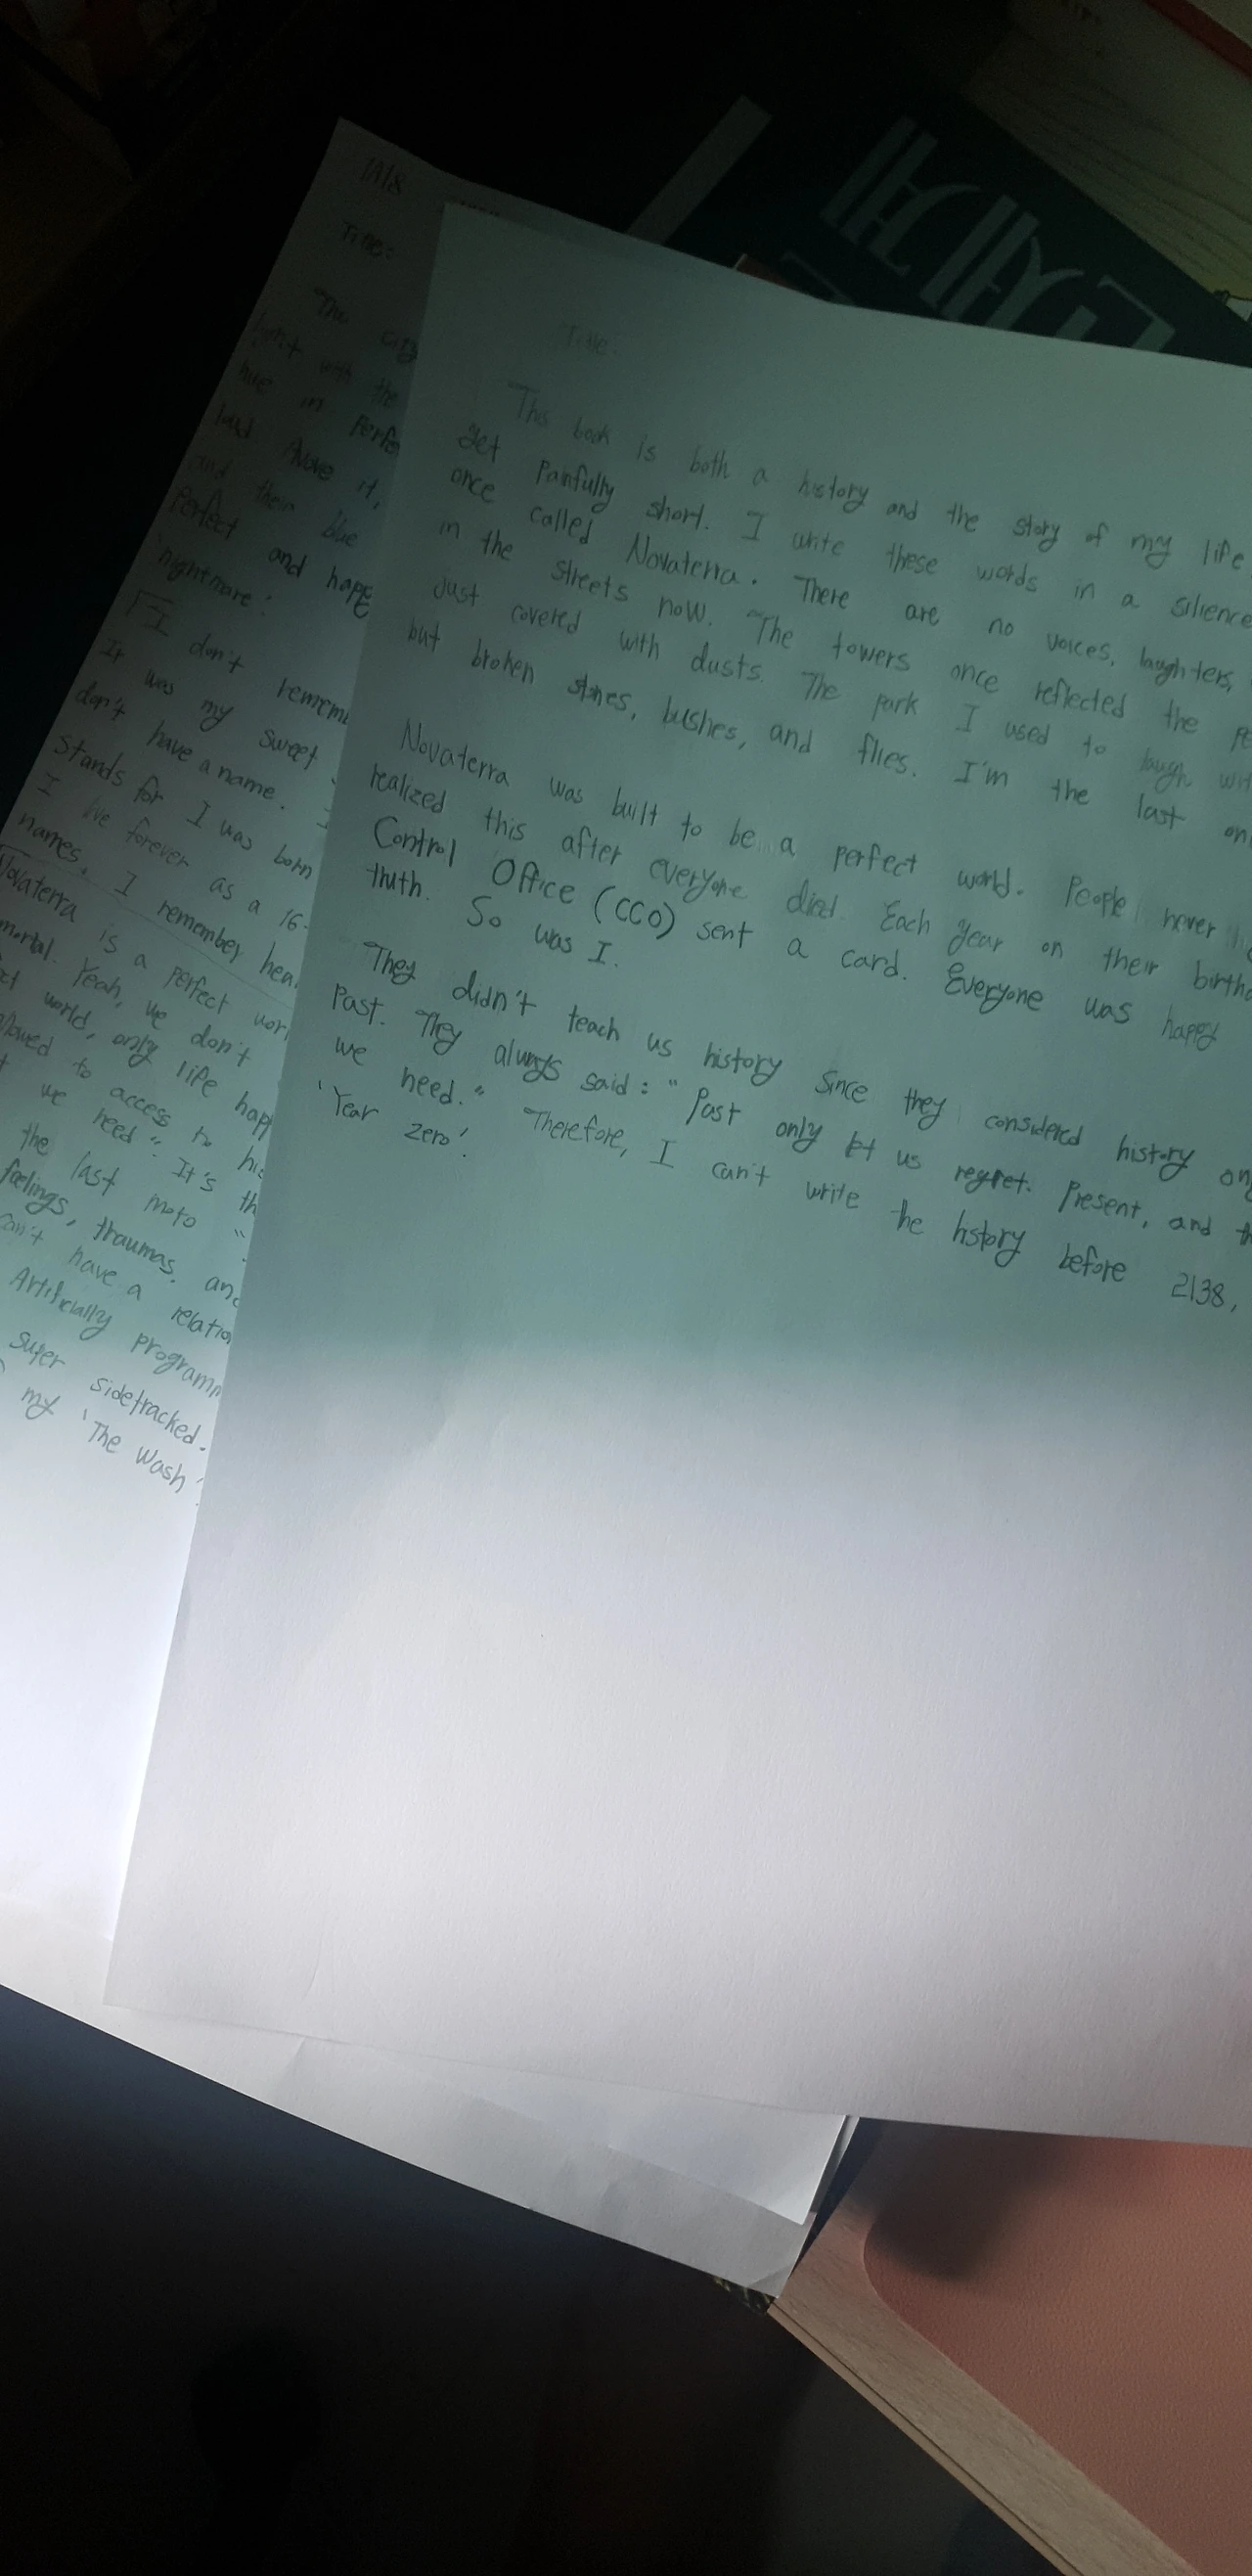 Title:
This book is both a history and the story of my life
get painfully short. I write these words in a silience
once called Novaterra. There are no voices, laughters,
in the streets now. The towers once reflected the
just covered with dusts. The park I used to laugh
but broken stones, bushes, and flies. I'm the last
Novaterra was built to be a perfect world. People never
realized this after everyone died. Each year on their
Control Office (CCO) sent a card. Everyone was happy
truth. So was I.
They didn't teach us history since they considered history
Past. They always said: " Past only let us regret. Present, and
we need." Therefore, I can't write the history before 2138,
'Year zero'.
Title:
The city
with the
in perfe
last. Above it,
and their blue
Perfect and happ
'nightmare'.
I don't remem
It was my sweet
don't have a name. I
stands for I was born
I live forever as a 16-
names, I remember hea
Novaterra is a perfect wor
mortal. Yeah, we don't
world, only life happ
lowed to access to his
we need". It's th
the last moto "
feelings, thraumas, and
can't have a relatio
Artificially programm
super sidetracked.
my 'The Wash'.